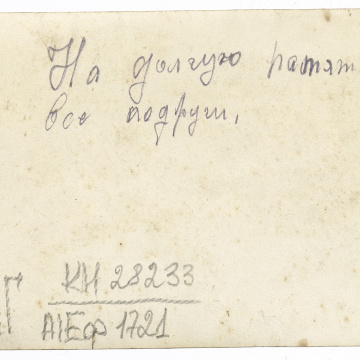 На долгую памят
все подруги,
КН 28233
А1Еф 1721